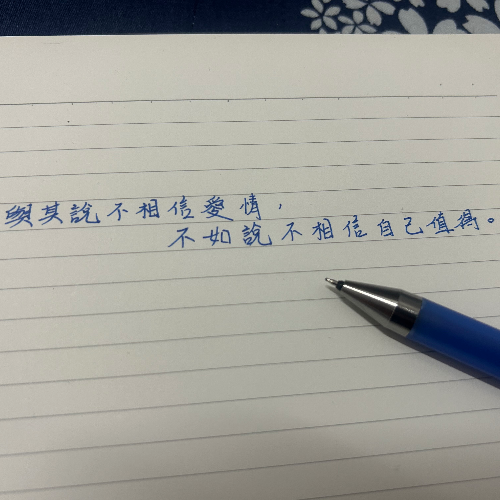 與其說不相信愛情，
不如說不相信自己值得。